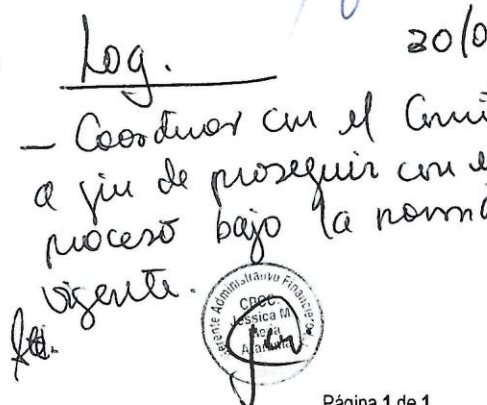 Log. 30/0
– Coordinar con el Comi
a fin de proseguir con e
proceso bajo la norma
vigente.
Gerente Administrativo Financiero
CPCC.
Jessica M
Página 1 de 1